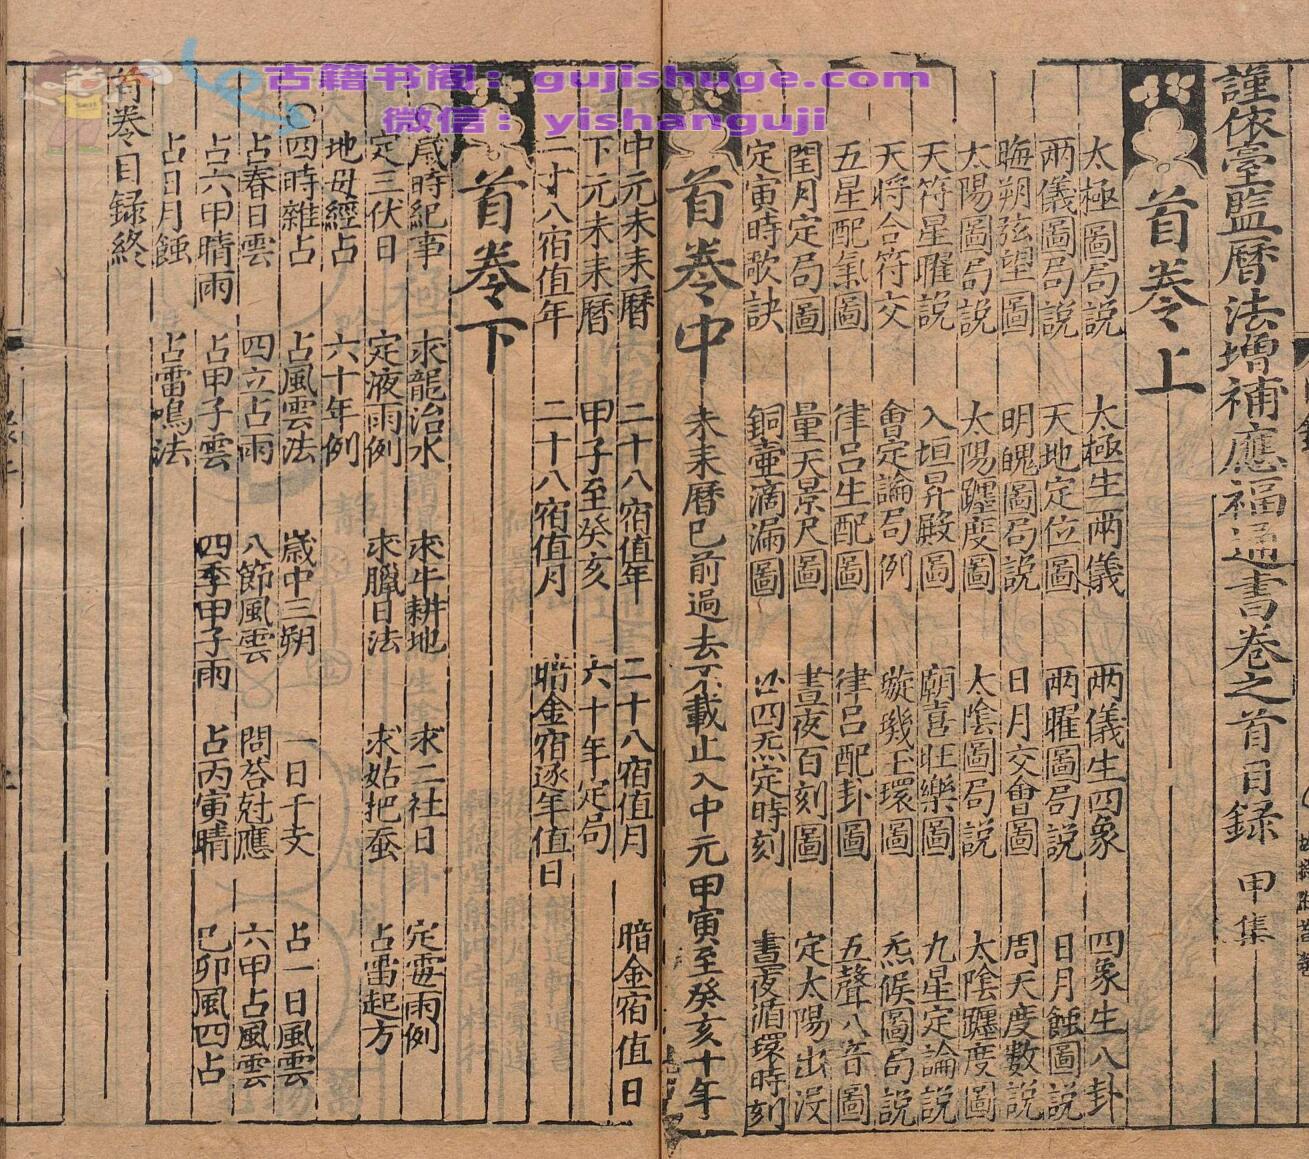 古籍书阁：gujishuge.com
微信：yishanguji
謹依臺監曆法增補應福通書卷之首目錄 甲集
首卷上
太極圖局說 太極生兩儀 兩儀生四象 四象生八卦
兩儀圖局說 天地定位圖 兩曜圖局說 日月蝕圖說
晦朔弦望圖 明魄圖局說 日月交會圖 周天度數說
太陽圖局說 太陽躔度圖 太陰圖局說 太陰躔度圖
天符星曜說 入垣昇殿圖 廟喜旺樂圖 九星定論說
天將合符交 會定論局例 璇璣玉環圖 炁候圖局說
五星配氣圖 律呂生配圖 律呂配卦圖 五聲八音圖
閏月定局圖 量天景尺圖 晝夜百刻圖 定太陽出没
定寅時歌訣 銅壺滴漏圖 四炁定時刻 晝夜循環時刻
首卷中 未来曆已前過去不載止入中元甲寅至癸亥十年
中元未来曆 二十八宿值年 二十八宿值月 暗金宿值日
下元未来曆 甲子至癸亥 六十年定局
二十八宿值年 二十八宿值月 暗金宿逐年值日
首卷下
〇歲時紀事 求龍治水 求牛耕地 求二社日 定霉雨例
定三伏日 定液雨例 求臘日法 求姑把蚕 占雷起方
地母經占 六十年例
〇四時雜占 占風雲法 歲中三朔 一日干支 占一日風雲
占春日雲 四立占雨 八節風雲 問荅尅應 六甲占風雲
占六甲晴雨 占甲子雲 四季甲子雨 占丙寅晴 己卯風四占
占日月蝕 占雷鳴法
首卷目録終